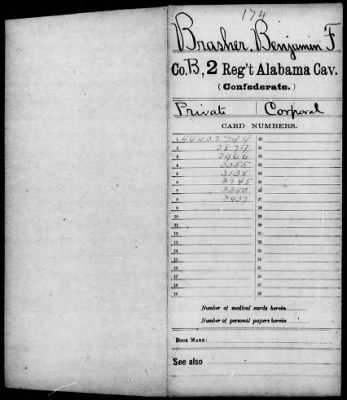 174
Brasher, Benjamin F
Co. B, 2 Reg't Alabama Cav.
(Confederate.)
Private Corporal
CARD NUMBERS.
1 44402794 20
2 2879 21
3 2966 22
4 3055 23
5 3135 24
6 3245 25
7 3350 26
8 3437 27
9 28
10 29
11 30
12 31
13 32
14 33
15 34
16 35
17 36
18 37
19 38
Number of medical cards herein
Number of personal papers herein
BOOK MARK:
See also